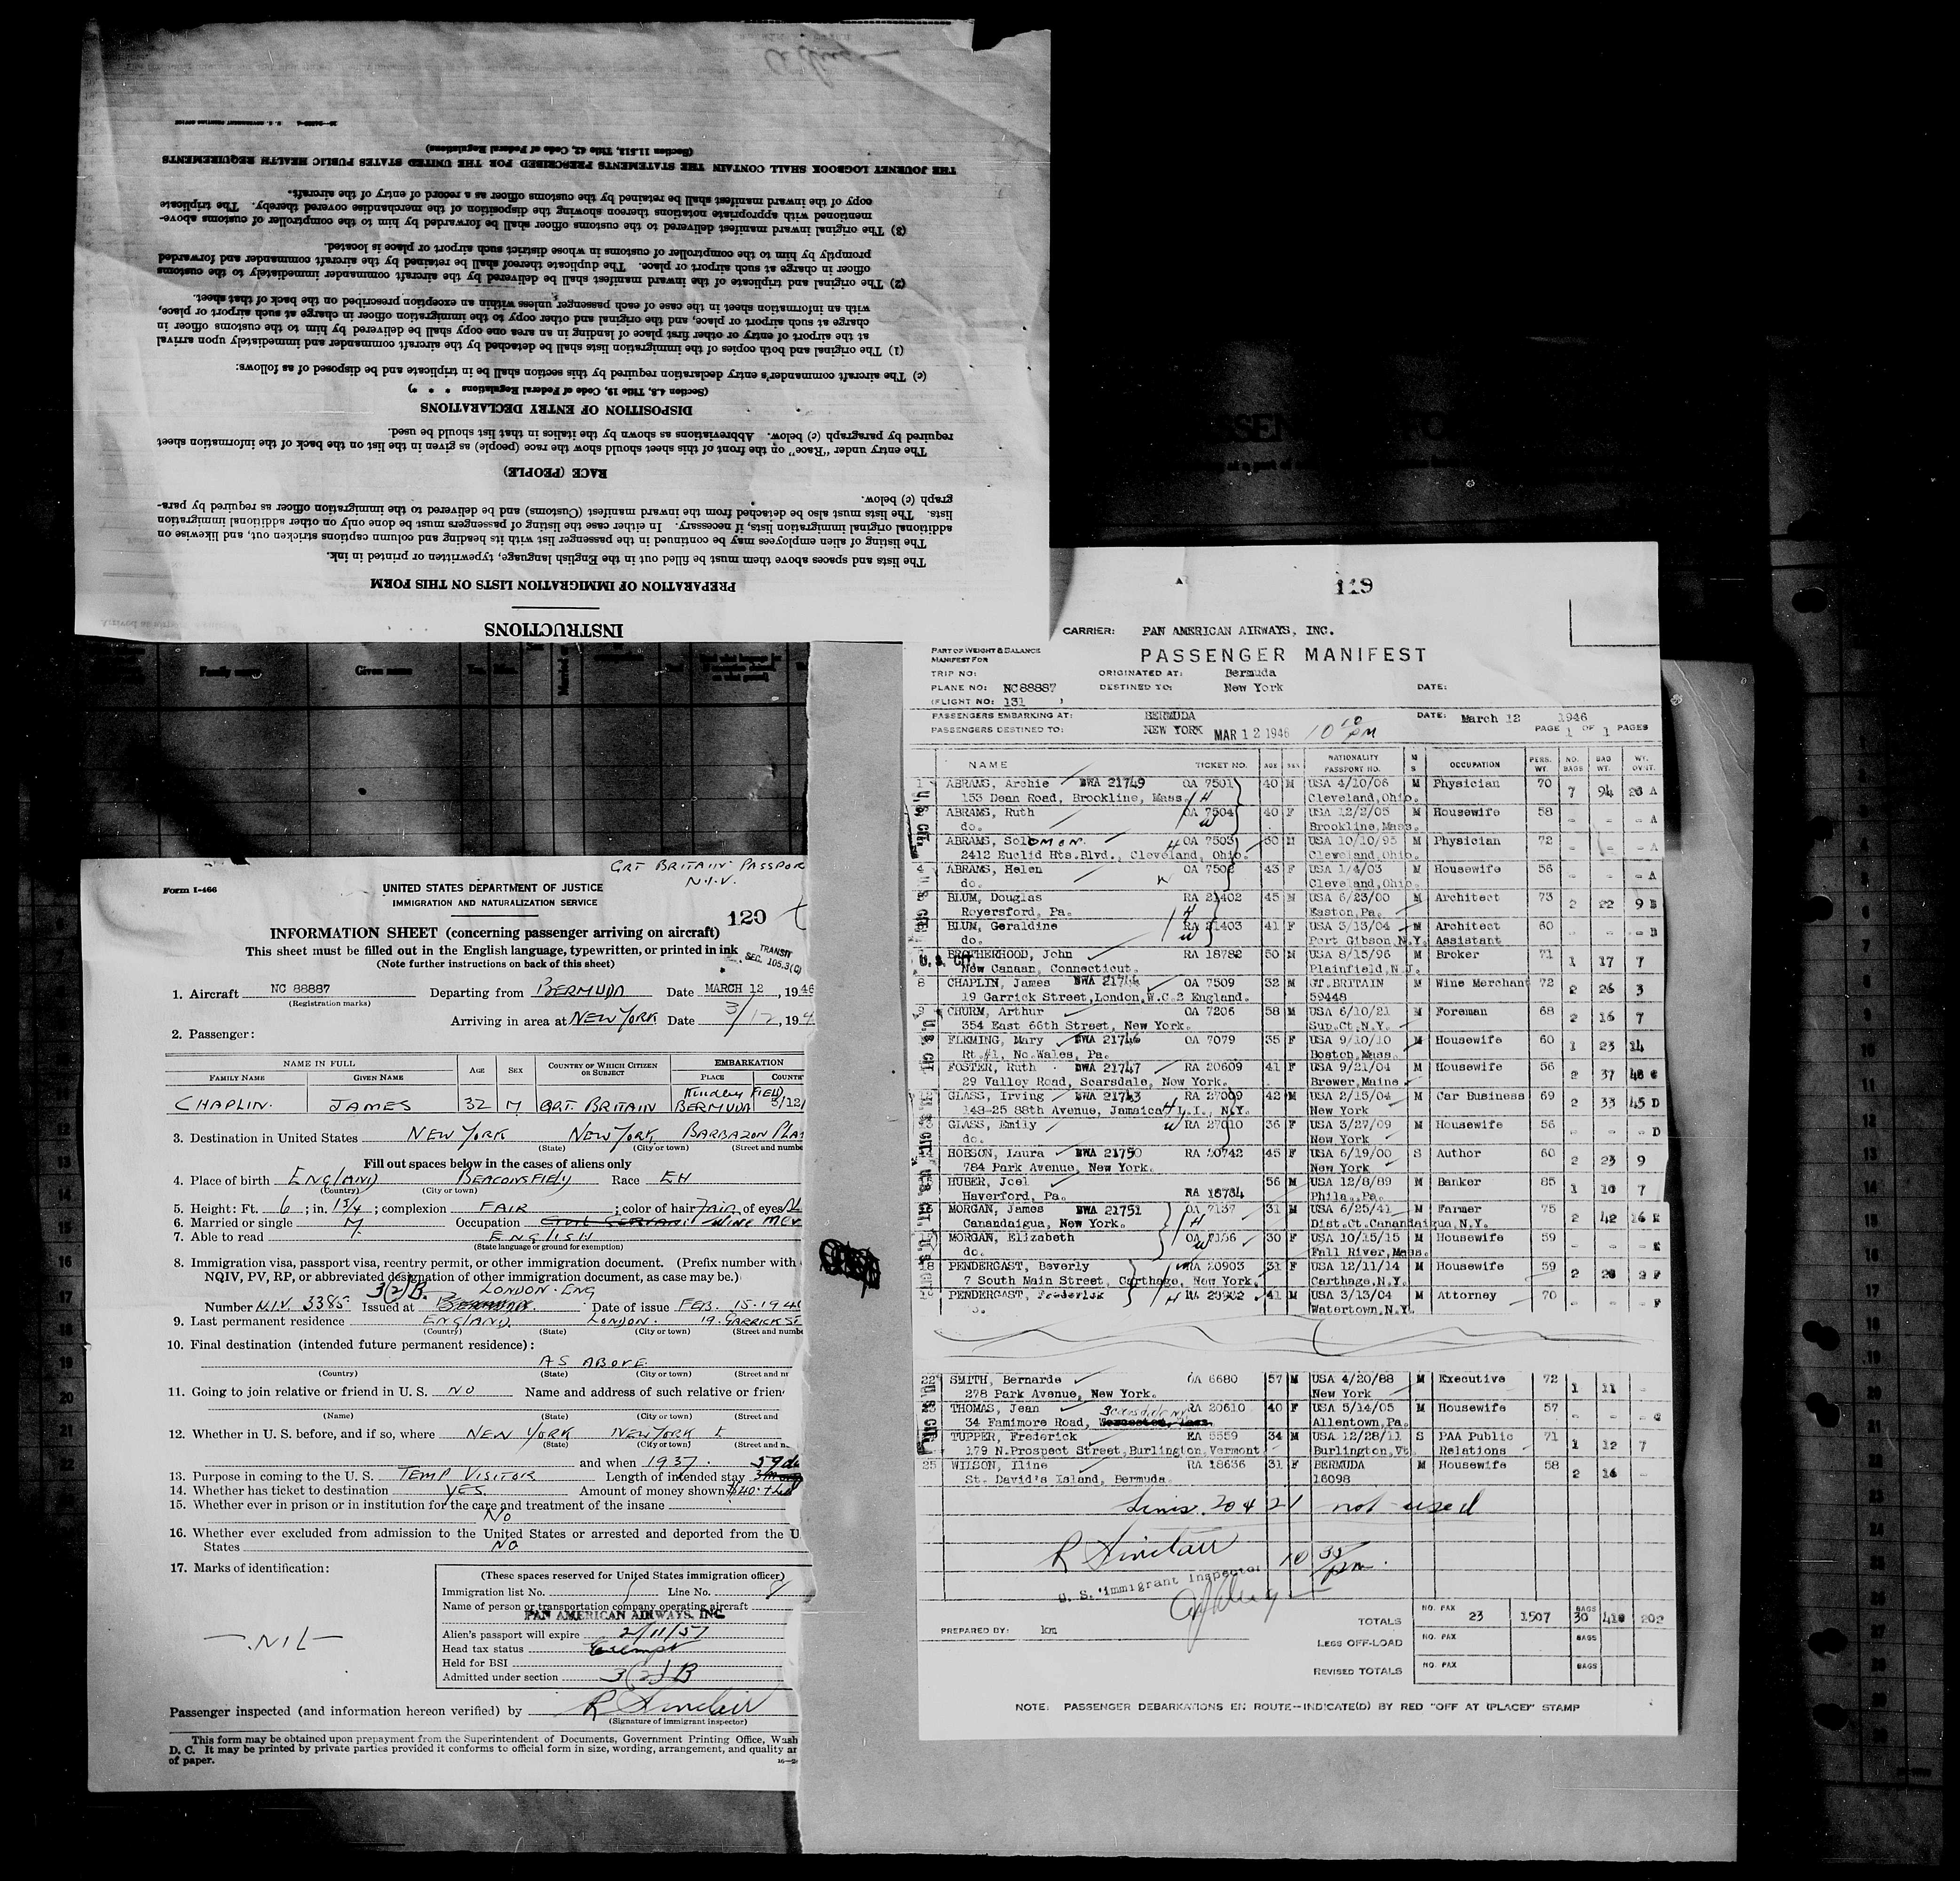 INSTRUCTIONS
PREPARATION OF IMMIGRATION LISTS ON THIS FORM
The lists and spaces above them must be filled out in the English language, typewritten or printed in ink.
The listing of alien employees may be continued in the passenger list with its heading and column captions stricken out, and likewise on
additional original immigration lists, if necessary. In either case the listing of passengers must be done only on other additional immigration
lists. The lists must also be detached from the inward manifest (Customs) and be delivered to the immigration officer as required by para-
graph (c) below.
RACE (PEOPLE)
The entry under "Race" on the front of this sheet should show the race (people) as given in the list on the back of the information sheet
required by paragraph (c) below. Abbreviations as shown by the italics in that list should be used.
DISPOSITION OF ENTRY DECLARATIONS
(Section 4.8, Title 19, Code of Federal Regulations * * *)
(c) The aircraft commander's entry declaration required by this section shall be in triplicate and be disposed of as follows:
(1) The original and both copies of the immigration lists shall be detached by the aircraft commander and immediately upon arrival
at the airport of entry or other first place of landing in an area one copy shall be delivered by him to the customs officer in
charge at such airport or place, and the original and other copy to the immigration officer in charge at such airport or place,
with an information sheet in the case of each passenger unless within an exception prescribed on the back of that sheet.
(2) The original and triplicate of the inward manifest shall be delivered by the aircraft commander immediately to the customs
officer in charge at such airport or place. The duplicate thereof shall be retained by the aircraft commander and forwarded
promptly by him to the comptroller of customs in whose district such airport or place is located.
(3) The original inward manifest delivered to the customs officer shall be forwarded by him to the comptroller of customs above-
mentioned with appropriate notations thereon showing the disposition of the merchandise covered thereby. The triplicate
copy of the inward manifest shall be retained by the customs officer as a record of entry of the aircraft.
THE JOURNEY LOGBOOK SHALL CONTAIN THE STATEMENTS PRESCRIBED FOR THE UNITED STATES PUBLIC HEALTH REQUIREMENTS
(Section 11.513, Title 42, Code of Federal Regulations)
U. S. GOVERNMENT PRINTING OFFICE
Family name Given name
GRT BRITAIN PASSPOR
N.I.V.
Form I-466
UNITED STATES DEPARTMENT OF JUSTICE
IMMIGRATION AND NATURALIZATION SERVICE
120
INFORMATION SHEET (concerning passenger arriving on aircraft)
This sheet must be filled out in the English language, typewritten, or printed in ink
(Note further instructions on back of this sheet)
TRANSIT
SEC. 105.3(C)
1. Aircraft NC 88887 Departing from BERMUDA Date MARCH 12, 1946
(Registration marks)
Arriving in area at NEW YORK Date 3/12, 194
2. Passenger:
NAME IN FULL AGE SEX COUNTRY OF WHICH CITIZEN OR SUBJECT EMBARKATION
FAMILY NAME GIVEN NAME PLACE COUNTR
CHAPLIN. JAMES 32 M GRT. BRITAIN Kindley FIELD BERMUDA 3/12/
3. Destination in United States NEW YORK NEW YORK BARBAZON PLA
(State) (City or town) (Street and numbe
Fill out spaces below in the cases of aliens only
4. Place of birth ENGLAND BEACONSFIELD Race EH
(Country) (City or town)
5. Height: Ft. 6; in. 1 3/4; complexion FAIR; color of hair Fair, of eyes
6. Married or single M. Occupation CIVIL SERVANT WINE MER
7. Able to read ENGLISH
(State language or ground for exemption)
8. Immigration visa, passport visa, reentry permit, or other immigration document. (Prefix number with
NQIV, PV, RP, or abbreviated designation of other immigration document, as case may be.)
3(2)B. LONDON. ENG
Number N.I.V. 3385 Issued at Date of issue FEB. 15. 194
9. Last permanent residence ENGLAND LONDON. 19. GARRICK ST
(Country) (State) (City or town) (Street and numbe
10. Final destination (intended future permanent residence):
AS ABOVE
(Country) (State) (City or town) (Street and nu
11. Going to join relative or friend in U. S. NO Name and address of such relative or frien
(Name) (State) (City or town) (Street and
12. Whether in U. S. before, and if so, where NEW YORK NEW YORK
(State) (City or town) (Street and n
and when 1937. 59 da
13. Purpose in coming to the U. S. TEMP VISITOR Length of intended stay
14. Whether has ticket to destination YES Amount of money shown $40.
15. Whether ever in prison or in institution for the care and treatment of the insane
NO
16. Whether ever excluded from admission to the United States or arrested and deported from the U
States NO
17. Marks of identification:
NIL
(These spaces reserved for United States immigration officer)
Immigration list No. Line No. 8
Name of person or transportation company operating aircraft
PAN AMERICAN AIRWAYS, INC.
Alien's passport will expire 2/11/51
Head tax status Exempt
Held for BSI
Admitted under section 3(2)B
Passenger inspected (and information hereon verified) by R Sinclair
(Signature of immigrant inspector)
This form may be obtained upon prepayment from the Superintendent of Documents, Government Printing Office, Wash
D. C. It may be printed by private parties provided it conforms to official form in size, wording, arrangement, and quality an
of paper.
119
CARRIER: PAN AMERICAN AIRWAYS, INC.
PART OF WEIGHT & BALANCE
MANIFEST FOR
PASSENGER MANIFEST
TRIP NO: ORIGINATED AT: Bermuda
PLANE NO: NC88887 DESTINED TO: New York DATE:
(FLIGHT NO: 131 )
PASSENGERS EMBARKING AT: BERMUDA DATE: March 12 1946
PASSENGERS DESTINED TO: NEW YORK MAR 12 1946 10 10 PM PAGE 1 OF 1 PAGES
NAME TICKET NO. AGE SEX NATIONALITY PASSPORT NO. M S OCCUPATION PERS. WT. NO. BAGS BAG WT. WT. OVWT.
ABRAMS, Archie BWA 21749 OA 7501 40 M USA 4/10/06 M Physician 70 7 94 28 A
153 Dean Road, Brookline, Mass. H Cleveland,Ohio.
ABRAMS, Ruth OA 7504 40 F USA 12/2/05 M Housewife 58 - - - A
do. W Brookline,Mass.
ABRAMS, Solomon OA 7503 50 M USA 10/10/95 M Physician 72 - - - A
2412 Euclid Hts.Blvd., Cleveland, Ohio. H Cleveland,Ohio.
4 ABRAMS, Helen OA 7502 43 F USA 1/4/03 M Housewife 56 - - - A
do. W Cleveland,Ohio.
BLUM, Douglas RA 21402 45 M USA 6/23/00 M Architect 73 2 22 9 B
Royersford, Pa. H Easton,Pa.
BLUM, Geraldine RA 21403 41 F USA 3/13/04 M Architect 60 - - - B
do. W Port Gibson,N.Y. Assistant
BROTHERHOOD, John RA 18782 50 M USA 8/15/96 M Broker 71 1 17 7
U. S. CIT. New Canaan, Connecticut. Plainfield,N.J.
8 CHAPLIN, James BWA 21744 OA 7509 32 M GT.BRITAIN M Wine Merchant 72 2 26 3
19 Garrick Street,London,W.C.2 England. 59448
CHURM, Arthur OA 7206 58 M USA 6/10/21 M Foreman 68 2 16 7
354 East 66th Street, New York. Sup.Ct.N.Y.
FLEMING, Mary BWA 21746 OA 7079 35 F USA 9/10/10 M Housewife 60 1 23 14
Rt.#1, No.Wales, Pa. Boston,Mass.
FOSTER, Ruth BWA 21747 RA 20609 41 F USA 9/21/04 M Housewife 56 2 37 48 C
29 Valley Road, Scarsdale, New York. Brewer,Maine
GLASS, Irving BWA 21743 RA 27009 42 M USA 2/15/04 M Car Business 69 2 33 45 D
148-25 88th Avenue, Jamaica, L.I., N.Y. H New York
GLASS, Emily RA 27010 36 F USA 3/27/09 M Housewife 56 - - - D
do. W New York
HOBSON, Laura BWA 21750 RA 20742 45 F USA 6/19/00 S Author 60 2 23 9
784 Park Avenue, New York. New York
HUBER, Joel RA 18734 56 M USA 12/8/89 M Banker 85 1 10 7
Haverford, Pa. Phila.,Pa.
MORGAN, James BWA 21751 OA 7137 31 M USA 6/25/41 M Farmer 75 2 42 16 E
Canandaigua, New York. H Dist.Ct.Canandaigua,N.Y.
MORGAN, Elizabeth OA 7136 30 F USA 10/15/15 M Housewife 59 - - - E
do. W Fall River,Mass.
18 PENDERGAST, Beverly RA 20903 31 F USA 12/11/14 M Housewife 59 2 28 9 F
7 South Main Street, Carthage, New York. Carthage,N.Y.
PENDERGAST, Frederick RA 20902 41 M USA 3/13/04 M Attorney 70 - - - F
H Watertown,N.Y.
22 SMITH, Bernarde OA 6680 57 M USA 4/20/88 M Executive 72 1 11 -
278 Park Avenue, New York. New York
23 THOMAS, Jean RA 20610 40 F USA 5/14/05 M Housewife 57 - - - C
34 Famimore Road, Scarsdale NY Allentown,Pa.
TUPPER, Frederick EA 5559 34 M USA 12/28/11 S PAA Public 71 1 12 7
179 N.Prospect Street,Burlington,Vermont Burlington,Vt. Relations
25 WILSON, Iline RA 18636 31 F BERMUDA M Housewife 58 2 16 -
St. David's Island, Bermuda. 16098
Lines 20 & 21 not used
R Sinclair 10 35 pm.
U. S. Immigrant Inspector
TOTALS NO. PAX 23 1507 BAGS 30 410 202
PREPARED BY: km
LESS OFF-LOAD NO. PAX BAGS
REVISED TOTALS NO. PAX BAGS
NOTE: PASSENGER DEBARKATIONS EN ROUTE—INDICATE(D) BY RED "OFF AT (PLACE)" STAMP